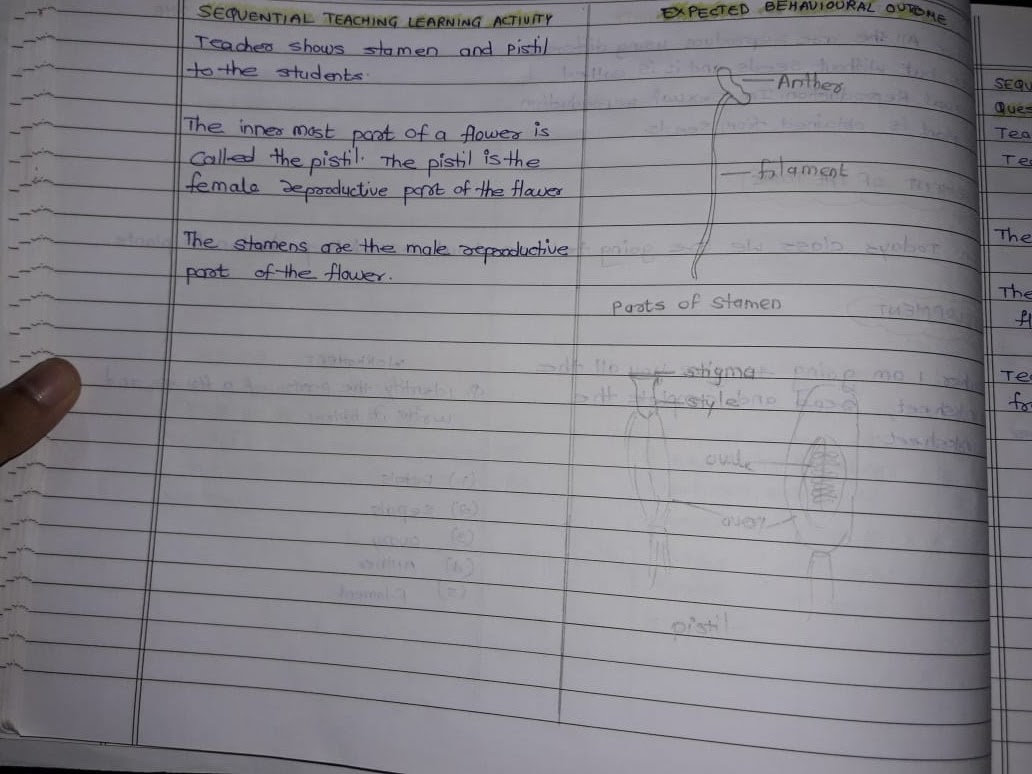 SEQUENTIAL TEACHING LEARNING ACTIVITY
Teacher shows stamen and Pistil
to the students.
The inner most part of a flower is
called the pistil. The pistil is the
female reproductive part of the flower
The stamens are the male reproductive
part of the flower.
EXPECTED BEHAVIOURAL OUTOME
Anther
filament
Parts of stamen
stigma
style
ovule
ovary
pistil
SEQU
Ques
Tea
Te
The
The
fl
Te
fo